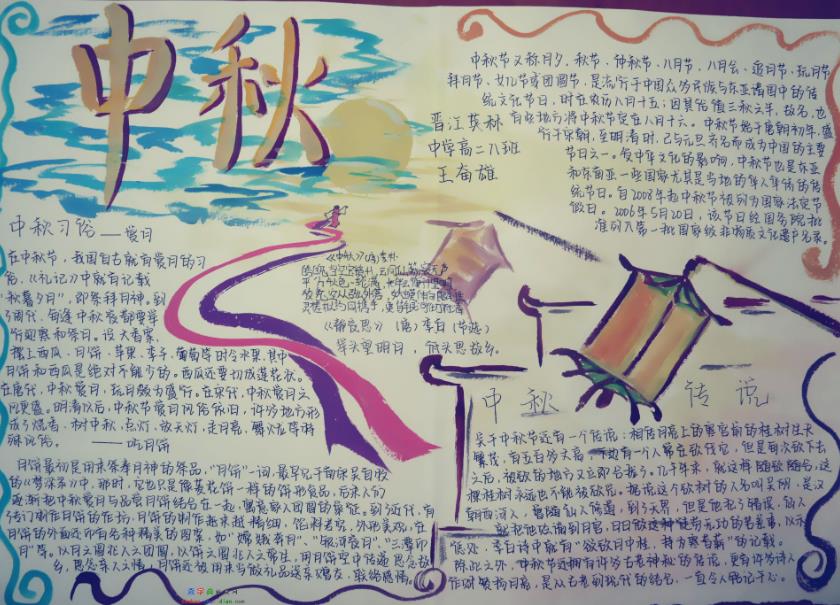 中秋
中秋节又称月夕、秋节、仲秋节、八月节、八月会、追月节、玩月节
拜月节、女儿节或团圆节,是流行于中国众多民族与东亚诸国中的传
统文化节日,时在农历八月十五;因其恰值三秋之半,故名,也
有些地方将中秋节定在八月十六。中秋节始于唐朝初年,盛
行于宋朝,至明清时,已与元旦齐名而成为中国的主要
节日之一。受中华文化的影响,中秋节也是东亚
和东南亚一些国家尤其是当地的华人华侨的传
统节日。自2008年起中秋节被列为国家法定节
假日。2006年5月20日,该节日经国务院批
准列入第一批国家级非物质文化遗产名录。
晋江英林
中学高二八班
王奋雄
中秋习俗——赏月
在中秋节,我国自古就有赏月的习
俗,《礼记》中就有记载
"秋暮夕月",即祭拜月神。到
了周代,每逢中秋夜都要举
行迎寒和祭月。设大香案,
摆上西瓜、月饼、苹果、李子、葡萄等时令水果,其中
月饼和西瓜是绝对不能少的。西瓜还要切成莲花状。
在唐代,中秋赏月、玩月颇为盛行。在宋代,中秋赏月之
风更盛。明清以后,中秋节赏月风俗依旧,许多地方形
成了烧香、树中秋、点灯、放天灯、走月亮、舞火龙等特
殊风俗。 ——吃月饼
月饼最初是用来祭奉月神的祭品,"月饼"一词,最早见于南宋吴自牧
的《梦粱录》中,那时,它也只是像菱花饼一样的饼形食品,后来人们
逐渐把中秋赏月与品尝月饼结合在一起,寓意家人团圆的象征。到了近代,有
专门制作月饼的作坊,月饼的制作越来越精细,馅料考究,外形美观,在
月饼的外面还印有各种精美的图案,如"嫦娥奔月"、"银河夜月"、"三潭印
月"等。以月之圆兆人之团圆,以饼之圆兆人之常生,用月饼寄托思念故
乡,思念亲人之情,月饼还被用来当做礼品送亲赠友,联络感情。
《静夜思》(唐)李白
举头望明月,低头思故乡。
中秋传说
关于中秋节还有一个传说:相传月亮上的广寒宫前的桂树生长
繁茂,有五百多丈高,下边有一个人常在砍伐它,但是每次砍下去
之后,被砍的地方又立即合拢了。几千年来,就这样随砍随合,这
棵桂树永远也不能被砍光。据说这个砍树的人名叫吴刚,是汉
朝西河人,曾跟随仙人修道,到了天界,但是他犯了错误,仙人
就把他贬谪到月宫,日日做这种徒劳无功的苦差事,以示
惩处。李白诗中就有"欲斫月中桂,持为寒者薪"的记载。
除此之外,中秋节还拥有许多古老神秘的传说,更有许多诗人
作时赞扬月亮,是从古老到现代的结合,一直令人铭记于心。